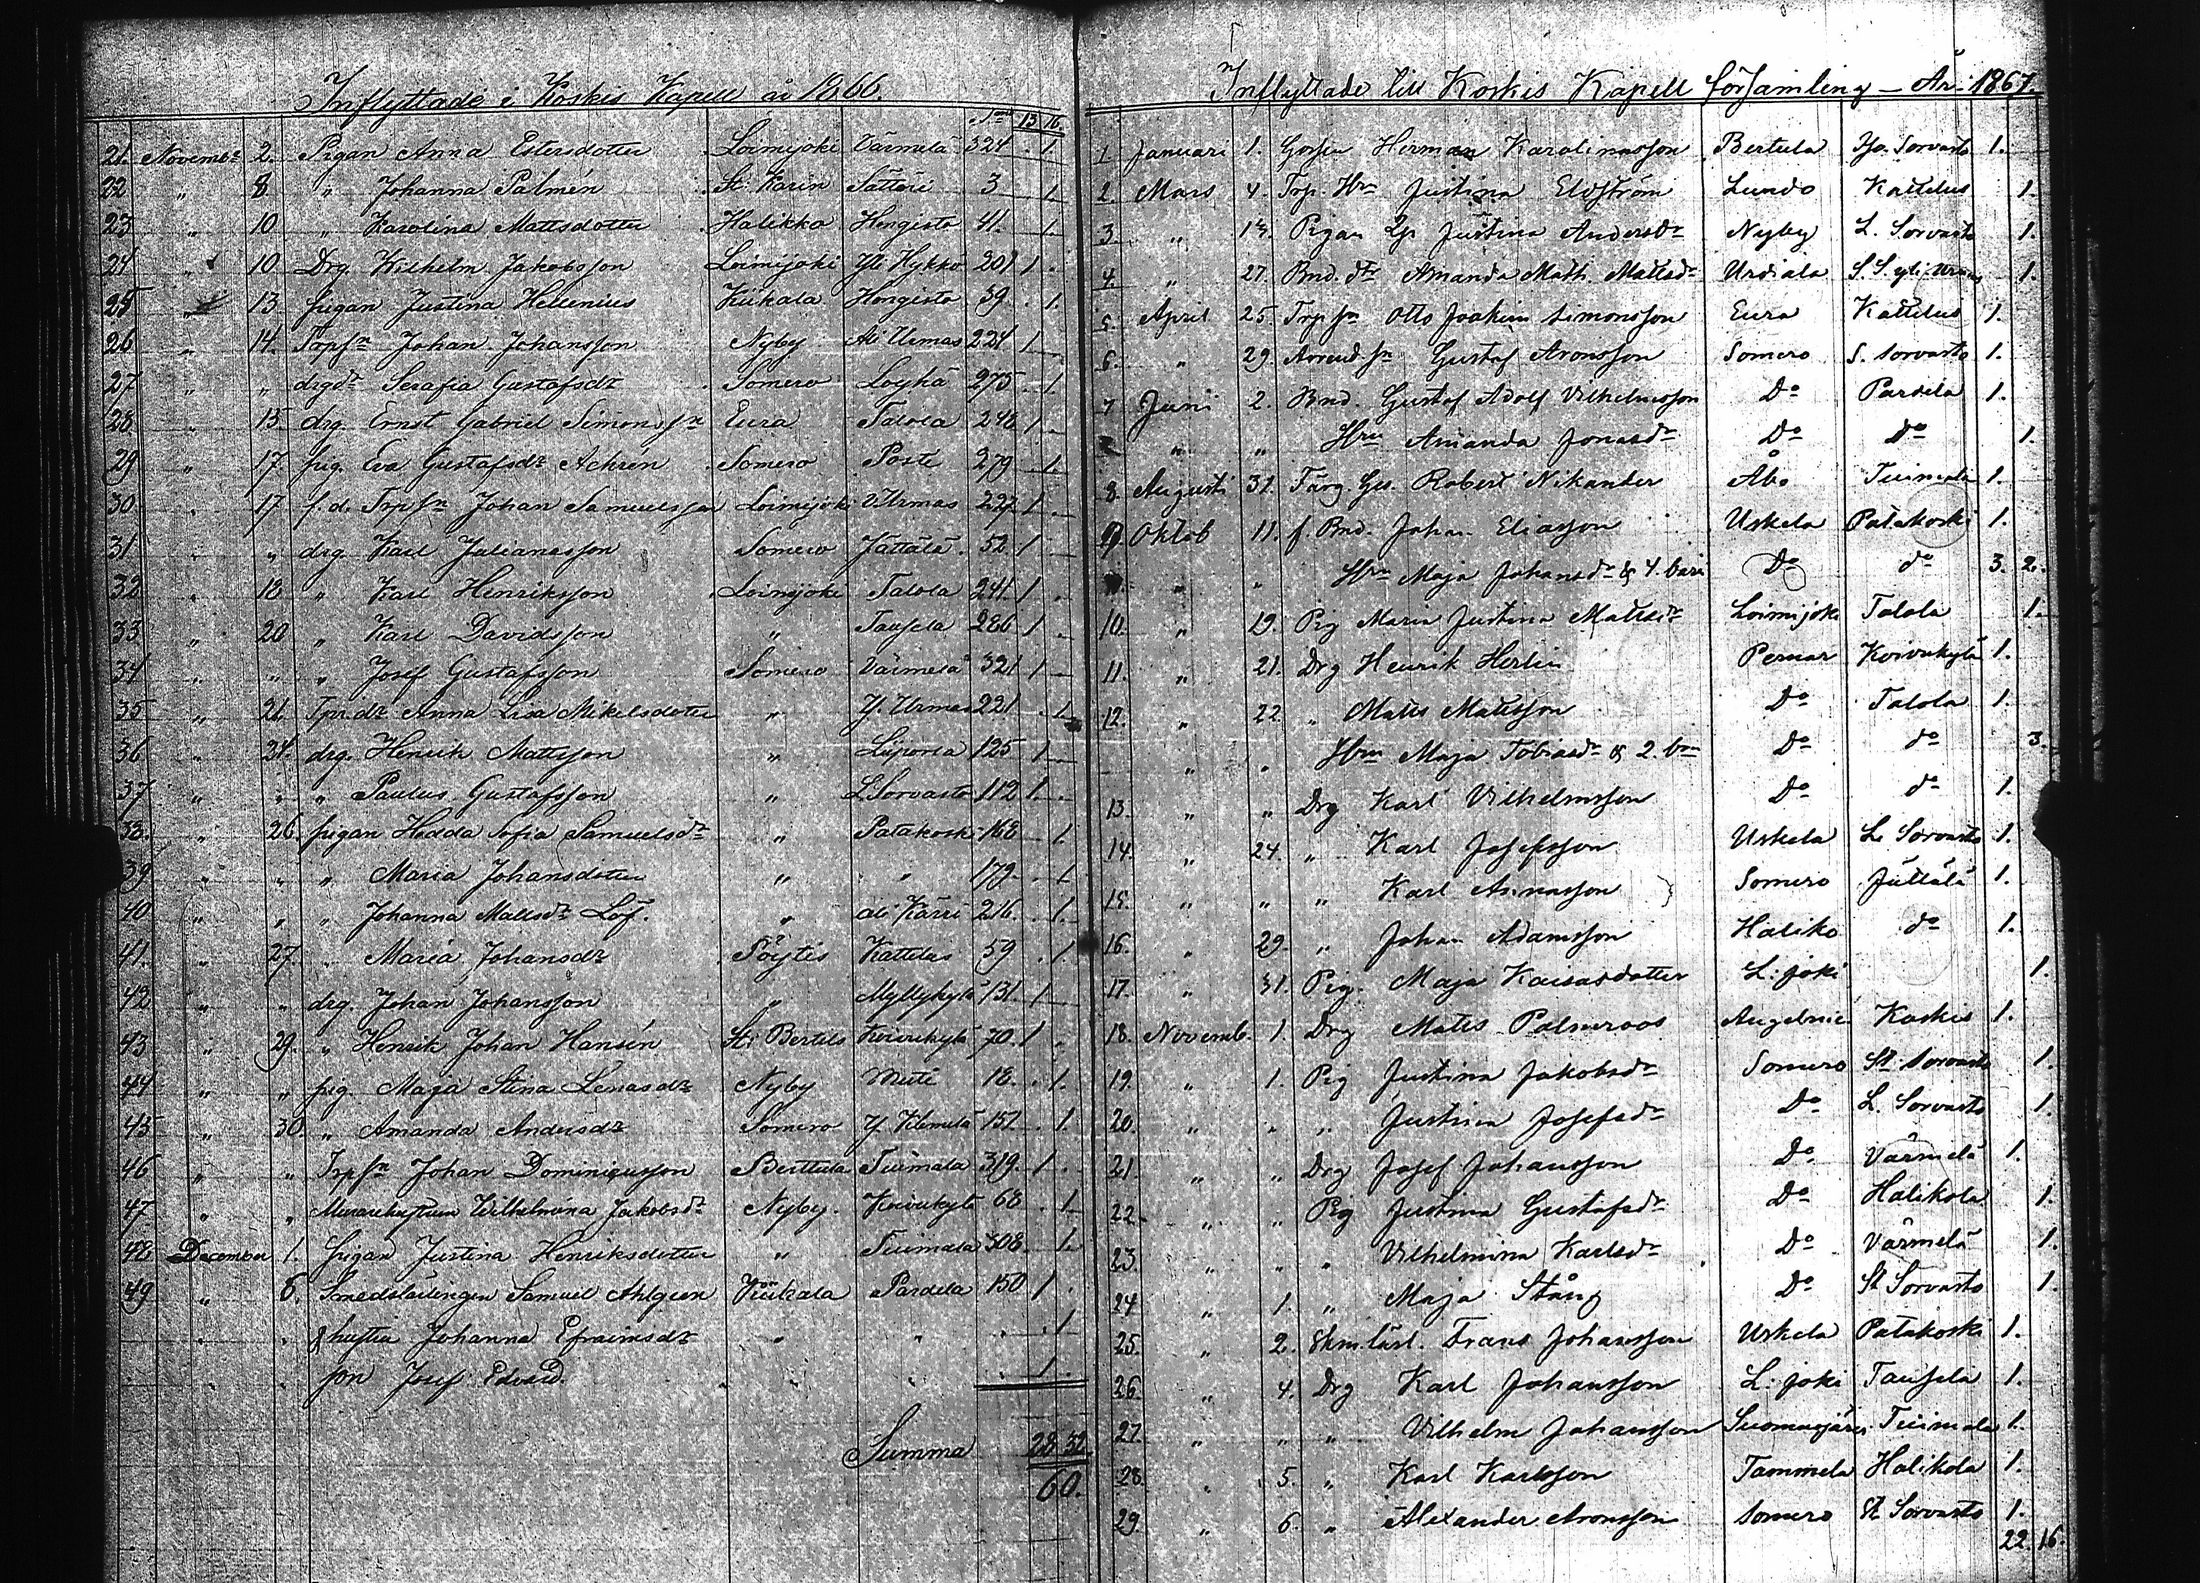 Inflyttade i Koskis Kapell år 1866.
21. Novembr 2. Pigan Anna Estersdotter Loimijoki Värmelä 324 . 1.
22 " 8 " Johanna Palmén St. Karin Sätteri 3 1.
23 " 10 " Karolina Mattsdotter Halikko Hongisto 41. 1.
24 " 10 Drg. Wilhelm Jakobsson Loimijoki Yli Hykkö 301 1.
25 " 13 pigan Justina Hellenius Kiikala Hongisto 39. . 1.
26 " 14. Trpsn Johan Johansson Nyby Ali Urmas 224 1
27 " " drgdr Serafia Gustafsdr Somero Loyhä 275 . 1.
28. " 15. drg. Ernst Gabriel Simonssn Eura Talola 248 1.
29 " 17. pig. Eva Gustafsdr Achrén Somero Poste 279 . 1.
30 " 17 f.d. Trpsn Johan Samuelsson Loimijoki Y.Urmas 227 1.
31 " " drg Karl Julianasson Somero Jättälä. 52 1
32 " 18 " Karl Henriksson Loimijoki Talola 241. 1
33 " 20 " Karl Davidsson " Taussela 286 1
34 " " " Josef Gustafsson Somero Värmelä 321 1
35 " 21. Tpr.dr Anna Lisa Mikelsdotter " Y. Urmas 221 . 1.
36 " 24. drg. Henrik Mattsson " Liiporla 125 1
37 " " " Paulus Gustafsson " L Sorvasto 112 1.
38. " 26. pigan Hedda Sofia Samuelsdr " Patakoski 168 . 1.
39 " " " Maria Johansdotter " " 179. . 1
40 " " " Johanna Mattsdr Löf. " ali Kärri 216. . 1.
41. " 27. " Maria Johansdr Pöytis Kattelus 59 . 1.
42 " " drg. Johan Johansson " Myllykylä 131. 1
43 " 29. " Henrik Johan Hansén St. Bertils Koivukylä 70. 1
44 " " pig. Maja Stina Lenasdr Nyby Muti 18. . 1.
45 " 30. " Amanda Andersdr Somero Y. Kilemelä 157 . 1.
46 " " Trpsn Johan Dominicusson Berttula Tuimala 319. 1.
47 " " Murarehustrun Wilhelmina Jakobsdr Nyby. Koivukylä 68 . 1
48 December 1. pigan Justina Henriksdotter " Tuimala 308. . 1.
49 " 5. Smedslärlingen Samuel Ahlgren Kiikala Pardela 150 1.
" " & hustru Johanna Efraimsdr " " . 1
" " son Josef Edvard. " " 1.
Summa 28 32
60.
Inflyttade till Koskis Kapell församling – År 1867.
1 Januari 1. Gossen Herman Karolinasson Bertula Iso. Sorvasto 1.
2. Mars 4. Trp. Hru Justina Eldström Lundo Kattelus 1.
3 " 14. Pigan Justina Andersdr Nyby L. Sorvasto 1.
4. " 27. Bnd. dr Amanda Math. Mattsdr Urdiala 1.
5. April 25. Trp sn Otto Joakim Simonsson Eura Kattelus 1.
6. " 29. Arrend. sn Gustaf Aronsson Somero S. Sorvasto 1.
7 Juni 2. Bnd. Gustaf Adolf Vilhelmsson Do Pardela 1.
" " Hru Amanda Jonasdr Do Do 1.
8. Augusti 31. Färg. Ges. Robert Nikander Åbo Tuimala 1.
9. Oktob 11. f. Bnd. Johan Eliasson Uskela Patakoski 1.
" " Hru Maja Johansdr & 4. barn Do do 3. 2.
10. " 19. Pig Maria Justina Mattsdr Loimijoki Talola 1.
11. " 21. Drg Henrik Herlin Pemar Koivukylä 1.
12. " 22 " Matts Mattsson Do Talola 1.
" " Hru Maja Tobiasdr & 2. bn Do do 3.
13. " " Drg Karl Vilhelmsson Do do 1.
14. " 24. " Karl Josefsson Uskela L. Sorvasto 1.
15. " " " Karl Annasson Somero Jättälä 1.
16. " 29. " Johan Adamsson Haliko do 1.
17. " 31. Pig. Maja Kaisasdotter L:joki 1.
18. Novemb. 1. Drg Matts Palmroos Angelnie Koskis 1.
19. " 1. Pig Justina Jakobsdr Somero St. Sorvasto 1.
20. " " " Justina Josefsdr Do L. Sorvasto 1.
21. " " Drg Josef Johansson Do Värmelä 1.
22. " " Pig Justina Gustafsdr Do Halikola 1.
23. " " " Vilhelmina Karlsdr Do Värmelä 1.
24 " 1. " Maja Stång Do St Sorvasto 1.
25. " 2. Skm.lärl. Frans Johansson Uskela Patakoski 1.
26. " 4. Drg Karl Johansson L:joki Taussela 1.
27. " " " Vilhelm Johansson Suomusjärvi Tuimala 1.
28. " 5. " Karl Karlsson Tammela Halikola 1.
29. " 6. " Alexander Aronsson Somero St Sorvasto 1.
22. 16.